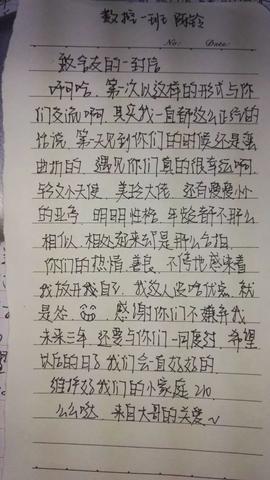 数控一班 陈铃
No: Date:
致室友的一封信
啊哈哈,第一次以这样的形式与你
们交流啊,其实我一直都这么正经的
性流,第一天见到你们的时候还是蛮
曲折的,遇见你们真的很幸运啊,
小天使,美玲大佬,还有傻傻
的亚奇,明明性格,年龄都不那么
相似,相处起来却是那么合拍,
你们的热情,善良,不停地感染着
我放开我自己,我这人没啥优点,就
是怂,感谢你们不嫌弃我
未来三年,还要与你们一同度过,希望
以后的日子我们会一直好好的,
维持好我们的小家庭 210,
么么哒,来自大哥的关爱~